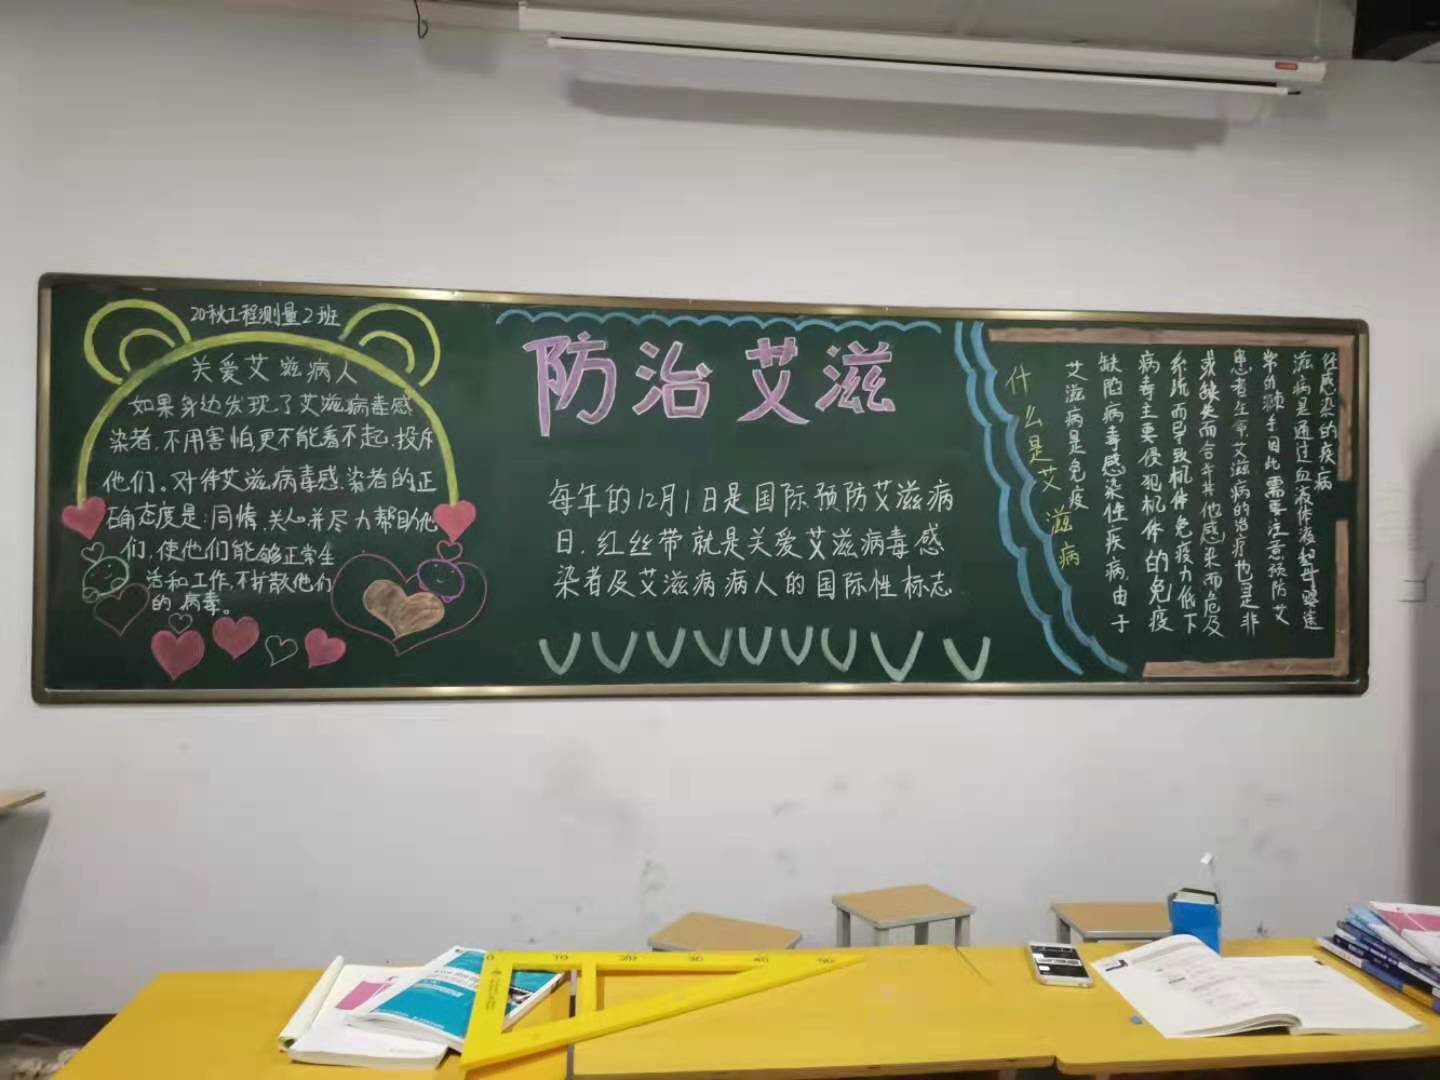 20秋工程测量2班
关爱艾滋病人
如果身边发现了艾滋病毒感
染者,不用害怕,更不能看不起,投斥
他们。对待艾滋病毒感染者的正
确态度是:同情,关心并尽力帮助他
们,使他们能够正常生
活和工作,不扩散他们
的病毒。
防治艾滋
每年的12月1日是国际预防艾滋病
日,红丝带就是关爱艾滋病毒感
染者及艾滋病病人的国际性标志
什么是艾滋病
艾滋病是免疫
缺陷病毒感染性疾病,由于
病毒主要侵犯机体的免疫
系统而导致机体免疫力低下
或缺失而合并其他感染而危及
患者生命艾滋病的治疗也是非
常的棘手因此需要注意预防艾
滋病是通过血液体液和母婴途
径感染的疾病
0 10 20 30 40 50